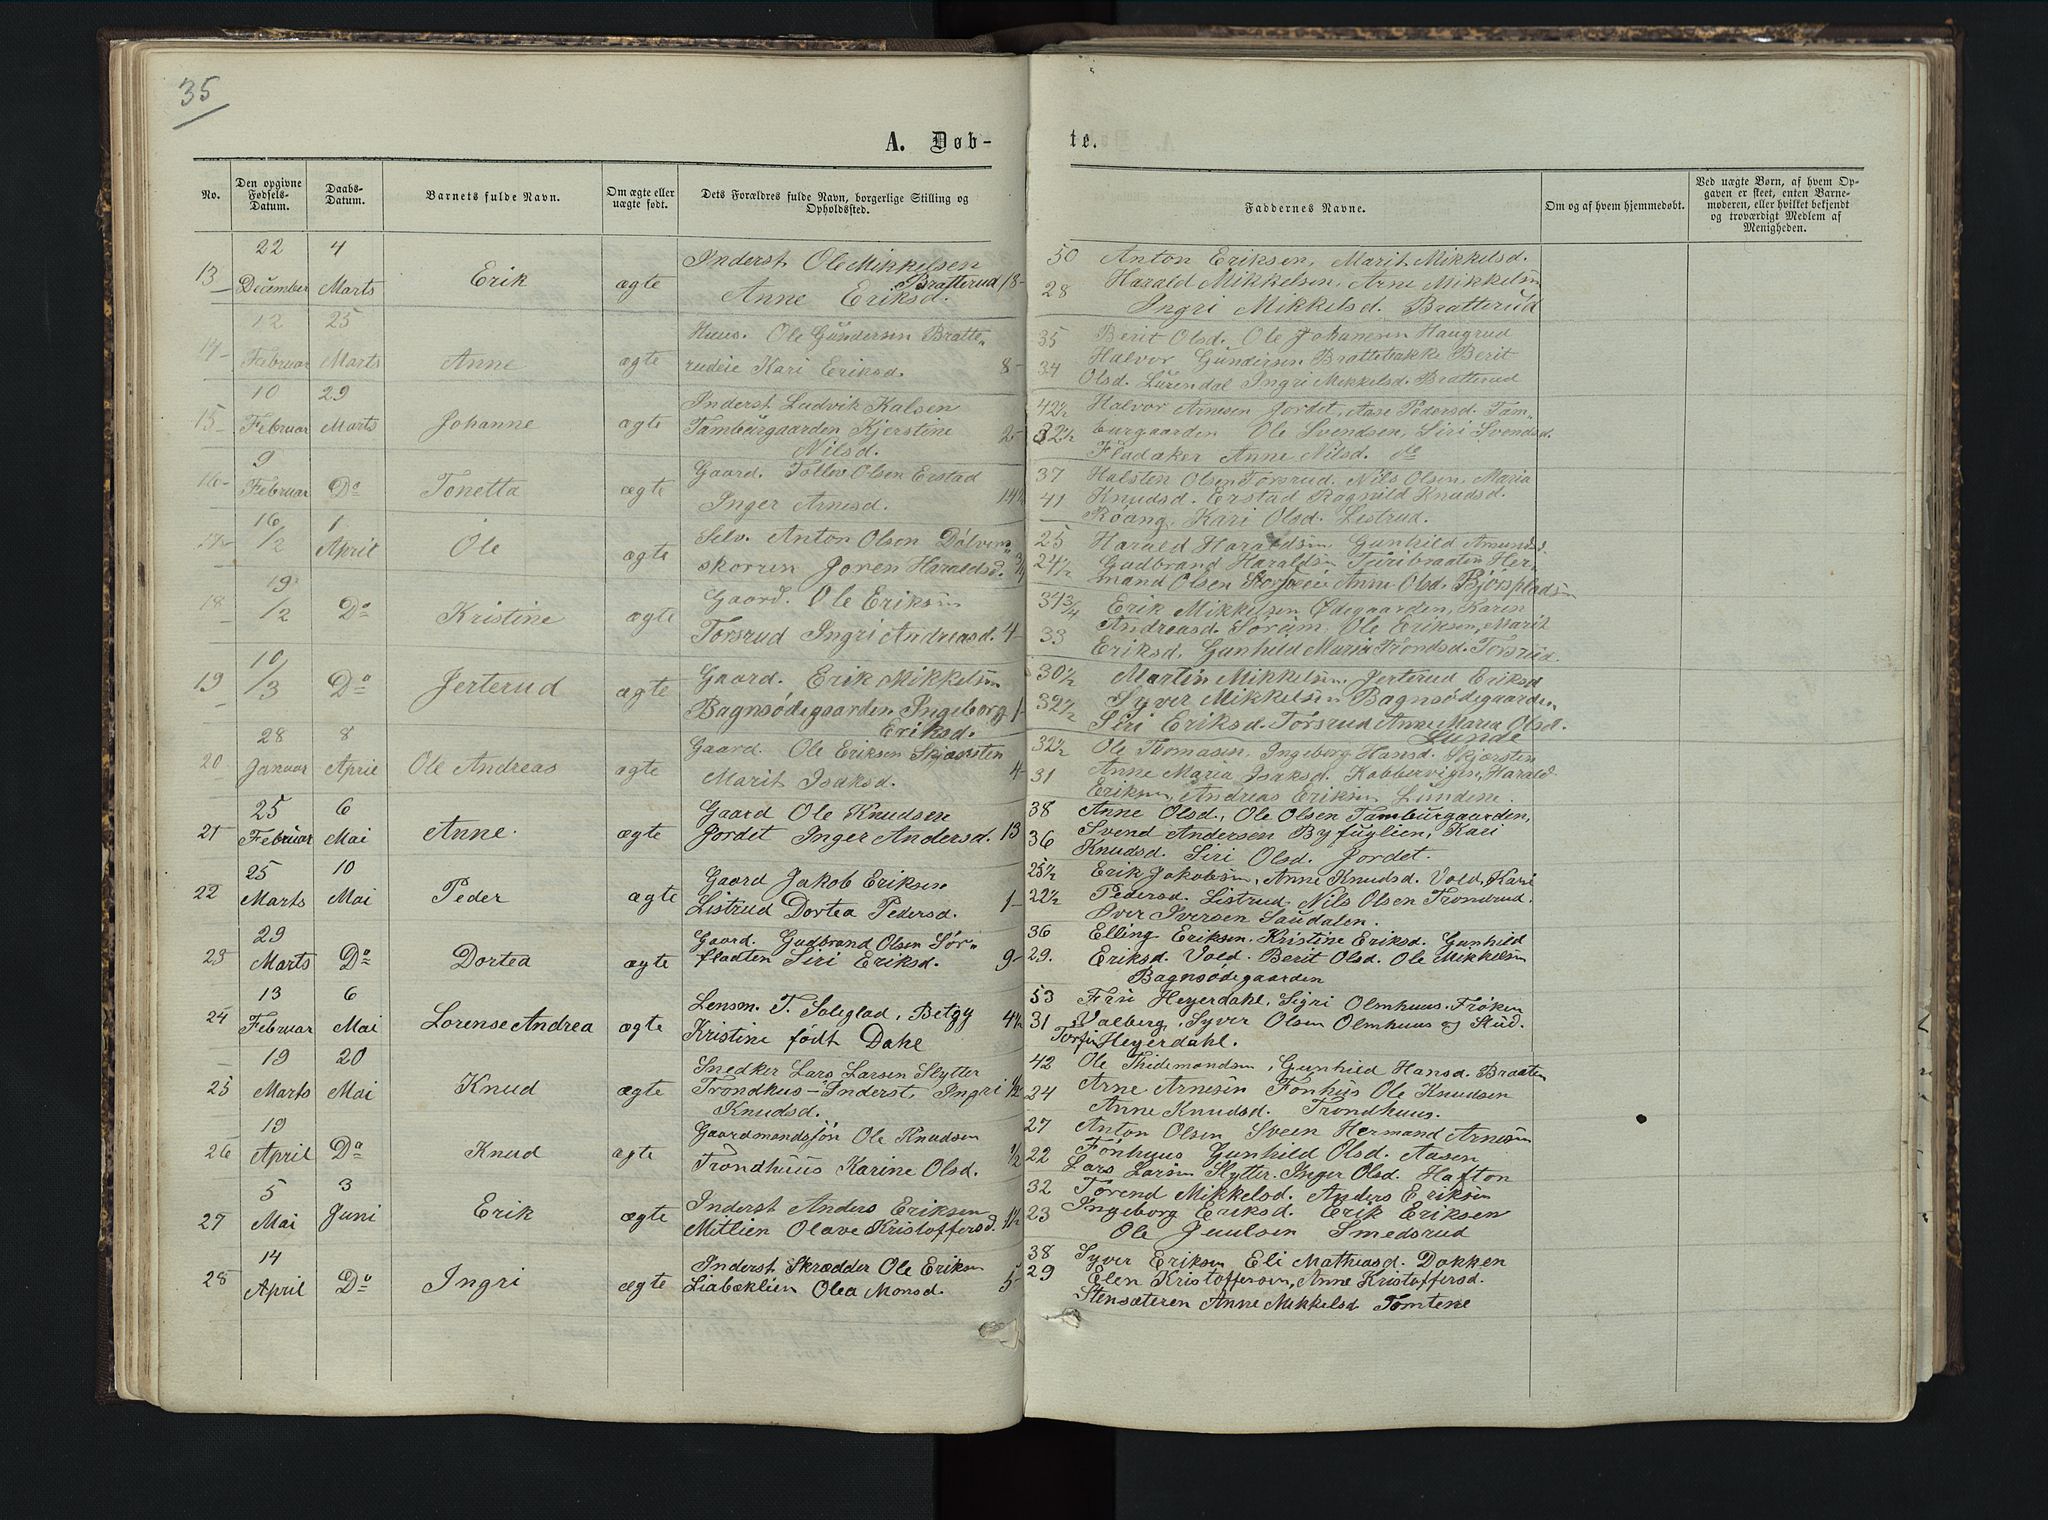 35
A. Døb-
te.
No.
Den opgivne Fødsels-Datum.
Daabs-Datum.
Barnets fulde Navn.
Om ægte eller uægte født.
Dets Forældres fulde Navn, borgerlige Stilling og Opholdssted.
Faddernes Navne.
Om og af hvem hjemmedøbt.
Ved uægte Børn, af hvem Op-
gaven er skeet, enten Barne-
moderen, eller hvilket bekjendt
og troværdigt Medlem af
Menigheden.
13 22 December 4 Marts Erik ægte Inderst Ole Mikkelsen
Bratterud 18-
Anne Eriksd.
50 Anton Eriksen, Marit Mikkelsd.
28 Harald Mikkelsen, Arne Mikkelsen
Ingri Mikkelsd. Bratterud
14 12 Februar 25 Marts Anne ægte Huus. Ole Gundersen Bratte-
rudeie Kari Eriksd. 8-
35 Berit Olsd. Ole Johannesen Haugrud
34 Halvor Gundersen Brattebakke Berit
Olsd. Lurendal Ingri Mikkelsd. Bratterud
15 10 Februar 29 Marts Johanne ægte Inderst Ludvik Kalsen
Tamburgaarden Kjerstine 2-
Nilsd.
42½ Halvor Arnesen Jordet, Aase Pedersd. Tam-
32½ burgaarden Ole Svendsen, Siri Svendsd.
Fladaker Anne Nilsd. do
16 9 Februar Do Tonetta ægte Gaard. Tollev Olsen Erstad
Inger Arnesd. 14½
37 Halsten Olsen Torsrud. Nils Olsen, Maria
41 Knudsd. Erstad Ragnild Knudsd.
Røang, Kari Olsd. Listrud.
17 16/2 1 April Ole ægte Selv. Anton Olsen Dölves-
skorren Joren Haraldsd. 3/4
25 Harald Haraldsen, Gunhild Amundsd.
24½ Gudbrand Haraldsen Turibraaten Her-
mand Olsen Anne Olsd. Bjørspladsen
18 19/2 Do Kristine ægte Gaard. Ole Eriksen
Torsrud Ingri Andreasd. 4-
34¾ Erik Mikkelsen Ødegaarden, Karen
33 Andreasd. Søraam. Ole Eriksen, Marit
Eriksd, Gunhild Maria Trondsd. Torsrud.
19 10/3 Do Jerterud ægte Gaard. Erik Mikkelsen
Bagnsødegaarden Ingeborg 1-
Eriksd.
30½ Martin Mikkelsen, Jerterud Eriksd
32½ Syver Mikkelsen Bagnsødegaarden,
Siri Eriksd. Torsrud Anne Maria Olsd.
Lunde
20 28 Januar 8 April Ole Andreas ægte Gaard. Ole Eriksen Skjærsten
Marit Isaksd. 4-
32½ Ole Thomasen, Ingeborg Hansd. Skjærsten
31 Anne Maria Isaksd. Kobbervigen, Harald
Eriksen, Andreas Eriksen Lundene.
21 25 Februar 6 Mai Anne. ægte Gaard Ole Knudsen
Jordet Inger Andersd. 13
38 Anne Olsd., Ole Olsen Tamburgaarden,
36 Svend Andersen Byfuglien, Kari
Knudsd. Siri Olsd. Jordet.
22 25 Marts 10 Mai Peder ægte Gaard Jakob Eriksen
Listrud Dortea Pedersd. 1-
25½ Erik Jakobsen, Anne Knudsd. Vold, Kari
22½ Pedersd. Listrud, Nils Olsen Trondrud.
Iver Iversen Saudalen.
23 29 Marts Do Dortea ægte Gaard. Gudbrand Olsen Sør-
fladten Siri Eriksd. 9-
36 Elling Eriksen, Kristine Eriksd. Gunhild
29. Eriksd. Vold. Berit Olsd. Ole Mikkelsen
Bagnsødegaarden
24 13 Februar 6 Mai Lorense Andrea ægte Lensm. T. Soleglad, Betzy 4½
Kristine født Dahl
53 Fru Heyerdahl, Sigri Olmhuus. Frøken
31 Valberg, Syver Olsen Olmhuus og Stud.
Torfin Heyerdahl.
25 19 Marts 20 Mai Knud ægte Snedker Lars Larsen Slytter
Trondhus-Inderst, Ingri 1/2
Knudsd.
42 Ole Thidemandsen, Gunhild Hansd. Braaten
24 Arne Arnesen Fønhus Ole Knudsen
Anne Knudsd. Trondhuus.
26 19 April Do Knud ægte Gaardmandssøn Ole Knudsen
Trondhuus Karine Olsd. 1/2
27 Anton Olsen Sveen Hermand Arnesen
22 Fønhuus Gunhild Olsd. Aasen
Lars Larsen Slytter. Inger Olsd. Hafton
27 5 Mai 3 Juni Erik ægte Inderst Anders Eriksen
Mitlien Olave Kristoffersd. 1½
32 Torend Mikkelsd. Anders Eriksen
23 Ingeborg Eriksd. Erik Eriksen
Ole Juulsen Smedsrud
28 14 April Do Ingri ægte Inderst Skrædder Ole Eriksen
Liabæklien Olea Monsd. 5-
38 Syver Eriksen Eli Mathiasd. Dokken
29 Elen Kristoffersen, Anne Kristoffersd.
Stensæteren Anne Mikkelsd Tomtene